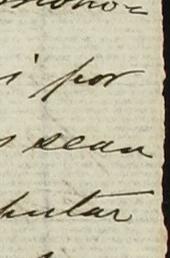 i por
s sean
putar